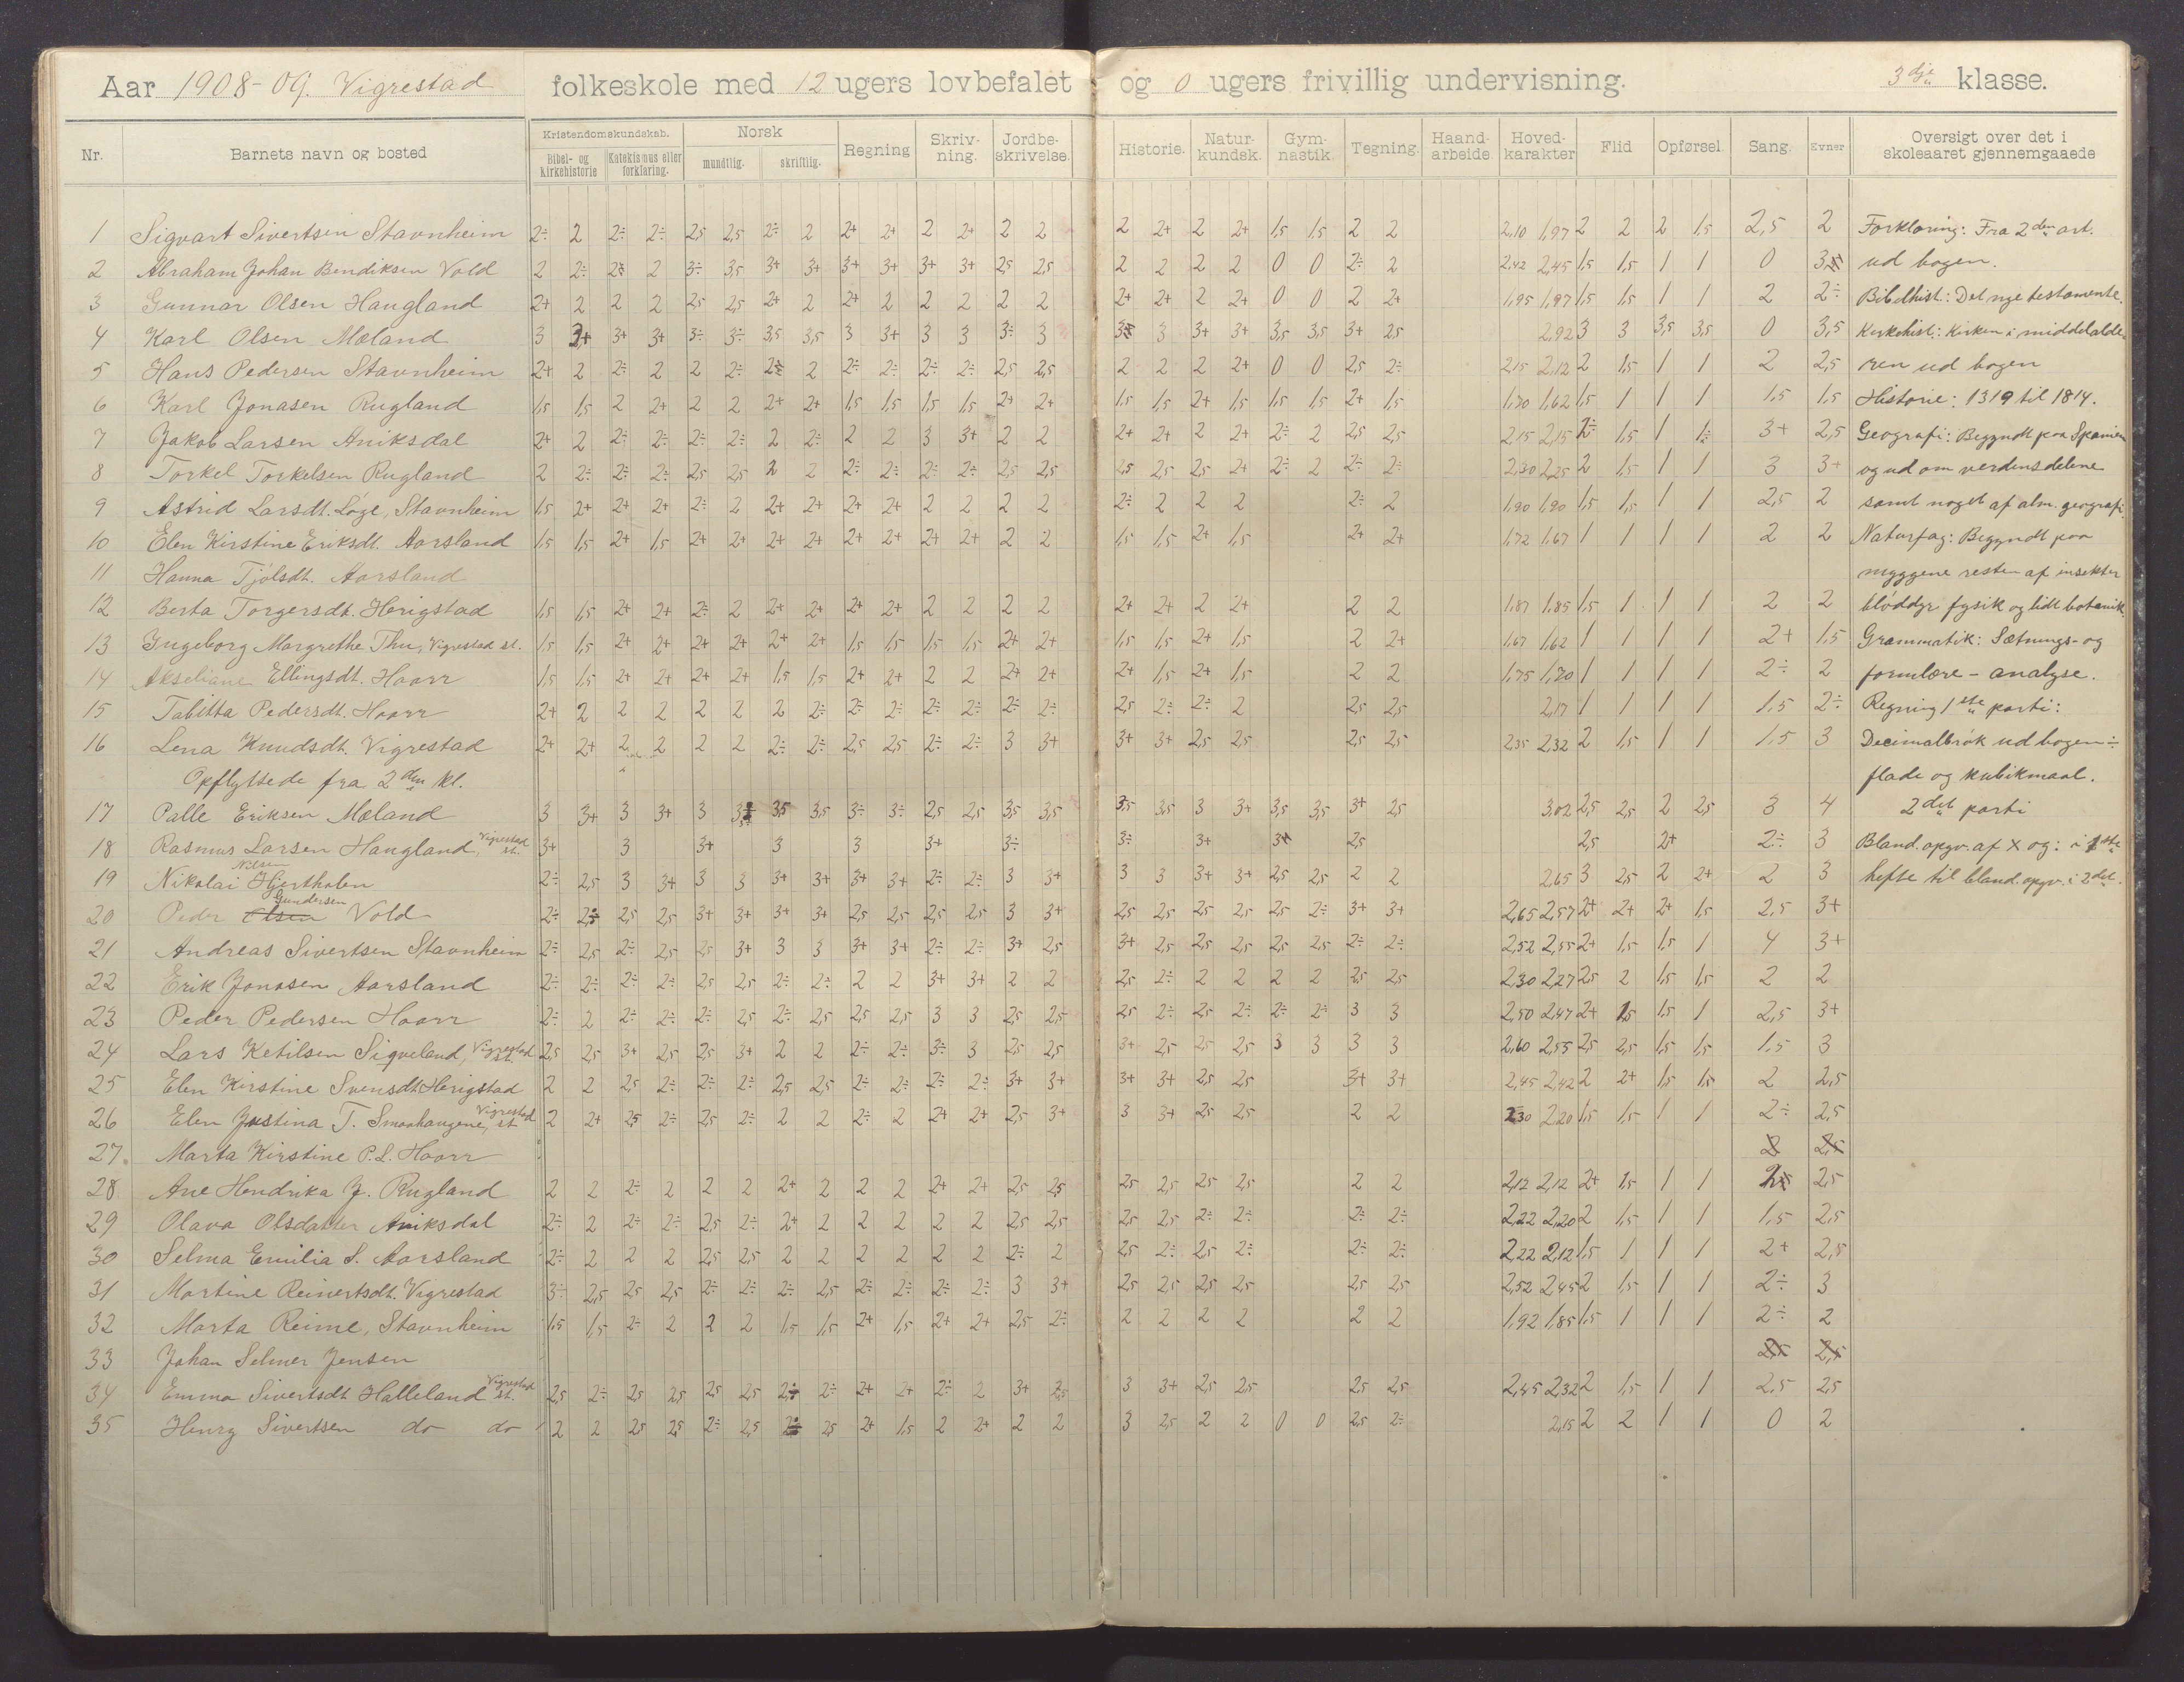 Aar 1908-09. Vigrestad folkeskole med 12 ugers lovbefalet og 0 ugers frivillig undervisning. 3dje klasse.
Nr. Barnets navn og bosted Kristendomskundskab. Norsk Regning Skriv-ning. Jordbe-skrivelse. Historie. Natur-kundsk. Gym-nastik Tegning. Haand-arbeide Hoved-karakter Flid Opførsel Sang. Evner Oversigt over det i skoleaaret gjennemgaaede
Bibel- og Kirkehistorie Katekismus eller forklaring. mundtlig. skriftlig.
1 Sigvart Sivertsen Stavnheim 2÷ 2 2÷ 2÷ 2,5 2,5 2÷ 2 2+ 2+ 2 2+ 2 2 2 2+ 2 2+ 1,5 1,5 2 2 2,10 1,97 2 2 2 1,5 2,5 2 Forklaring: Fra 2den art.
2 Abraham Johan Bendiksen Vold 2 2÷ 2 3÷ 3,5 3+ 3+ 3+ 3+ 3+ 3+ 2,5 2,5 2 2 2 2 0 0 2÷ 2 2,42 2,45 1,5 1,5 1 1 0 ud bogen.
3 Gunnar Olsen Haugland 2+ 2 2 2 2,5 2,5 2+ 2 2+ 2 2 2 2 2 2+ 2+ 2 2+ 0 0 2 2+ 1,95 1,97 1,5 1,5 1 1 2 2÷ Bibelhist.: Det nye testamente.
4 Karl Olsen Mæland 3 3+ 3+ 3+ 3÷ 3÷ 3,5 3,5 3 3+ 3 3 3÷ 3 3 3+ 3+ 3,5 3,5 3+ 2,5 2,92 3 3 3,5 3,5 0 3,5 Kirkehist.: Kirken i middelalde-
5 Hans Pedersen Stavnheim 2+ 2 2÷ 2 2 2÷ 2 2÷ 2÷ 2÷ 2÷ 2,5 2,5 2 2 2 2+ 0 0 2,5 2÷ 2,15 2,12 2 1,5 1 1 2 2,5 ren ud bogen
6 Karl Jonasen Rugland 1,5 1,5 2 2+ 2 2 2+ 2+ 1,5 1,5 1,5 1,5 2+ 2+ 1,5 1,5 2+ 1,5 1,5 1,5 2+ 1,5 1,70 1,62 1,5 1 1 1 1,5 1,5 Historie: 1319 til 1814.
7 Jakob Larsen Aniksdal 2+ 2 2÷ 2÷ 2÷ 2÷ 2 2÷ 2 2 3 3+ 2 2 2+ 2+ 2 2+ 2÷ 2 2,5 2,5 2,15 2,15 2÷ 1,5 1 1÷ 3+ 2,5 Geografi: Begyndt paa Spanien
8 Torkel Torkelsen Rugland 2 2÷ 2÷ 2÷ 2,5 2,5 2 2 2÷ 2÷ 2÷ 2÷ 2,5 2,5 2,5 2,5 2,5 2+ 2÷ 2 2÷ 2÷ 2,30 2,25 2 1,5 1 1 3 3+ og ud om verdensdelene
9 Astrid Larsdt. Løge, Stavnheim 1,5 2+ 2+ 2+ 2÷ 2 2+ 2+ 2+ 2+ 2 2 2 2 2÷ 2 2 2 2÷ 2 1,90 1,90 1,5 1,5 1 1 2,5 2 samt noget af alm. geografi.
10 Elen Kirstine Eriksdt. Aarsland 1,5 1,5 2+ 1,5 2+ 2+ 2+ 2+ 2+ 2+ 2+ 2+ 2 2 1,5 1,5 2+ 1,5 2+ 2+ 1,72 1,67 1 1 1 1 2 2 Naturfag: Begyndt paa
11 Hanna Tjølsdt. Aarsland myggene resten af insekter
12 Berta Torgersdt. Herigstad 1,5 1,5 2+ 2+ 2÷ 2 2+ 2+ 2+ 2+ 2 2 2 2 2+ 2+ 2 2+ 2 2 1,87 1,85 1,5 1 1 1 2 2 bløddyr fysik og lidt botanik.
13 Ingeborg Margrethe Thu, Vigrestad st. 1,5 1,5 2+ 2+ 2+ 2+ 2+ 2+ 1,5 1,5 1,5 1,5 2+ 2+ 1,5 1,5 2+ 1,5 2 2+ 1,67 1,62 1 1 1 1 2+ 1,5 Grammatik: Sætnings- og
14 Akseliane Ellingsdt. Haarr 1,5 1,5 2+ 2+ 2+ 2+ 1,5 1,5 2+ 2+ 2 2 2+ 2+ 2+ 1,5 2+ 1,5 2 2 1,75 1,70 1 1 1 1 2÷ 2 formlære - analyse.
15 Tabitta Pedersdt. Haarr 2+ 2 2 2 2 2 2 2÷ 2÷ 2÷ 2÷ 2÷ 2÷ 2÷ 2,5 2÷ 2÷ 2 2,5 2,5 2,17 1 1 1 1 1,5 2÷ Regning 1ste parti:
16 Lena Knudsdt. Vigrestad 2+ 2+ 2 2 2 2 2÷ 2÷ 2,5 2,5 2÷ 2÷ 3 3+ 3+ 3+ 2,5 2,5 2,5 2,5 2,35 2,32 2 1,5 1 1 1,5 3 Decimalbrøk ud bogen ÷
Opflyttede fra 2den kl. flade og kubikmaal.
17 Palle Eriksen Mæland 3 3+ 3 3+ 3 3,5 3,5 3÷ 3÷ 2,5 2,5 3,5 3,5 3,5 3,5 3 3+ 3,5 3,5 3+ 2,5 3,02 2,5 2,5 2 2,5 3 4 2det parti
18 Rasmus Larsen Haugland, Vigrestad st. 3+ 3 3+ 3 3 3+ 3÷ 3÷ 3+ 2,5 2,5 2+ 2÷ 3 Bland. opgv. af X og : i 1ste
19 Nikolai Nilsen Hjertholen 2÷ 2,5 3 3+ 3 3 3+ 3+ 3+ 3+ 2÷ 2÷ 3 3+ 3 3 3+ 3+ 2,5 2,5 2 2 2,65 3 2,5 2 2+ 2 3 hefte til bland. opgv. i 2det.
20 Peder Olsen Gundersen Vold 2÷ 2,5 2,5 3+ 3+ 3+ 3+ 2,5 2,5 2,5 2,5 3 3+ 2,5 2,5 2,5 2,5 2,5 2÷ 3+ 3+ 2,65 2,57 2+ 2+ 2+ 1,5 2,5 3+
21 Andreas Sivertsen Stavnheim 2÷ 2,5 2÷ 2,5 2,5 3+ 3 3 3+ 3+ 2÷ 2÷ 3+ 2,5 3+ 2,5 2,5 2,5 2,5 2,5 2÷ 2÷ 2,52 2,55 2+ 1,5 1,5 1 4 3+
22 Erik Jonasen Aarsland 2÷ 2÷ 2÷ 2÷ 2,5 2,5 2÷ 2÷ 2 2 3+ 3+ 2 2 2,5 2÷ 2 2 2 2 2,5 2,5 2,30 2,27 2,5 2 1,5 1,5 2 2
23 Peder Pedersen Haarr 2÷ 2 2÷ 2÷ 2÷ 2,5 2÷ 2,5 2,5 2,5 3 3 2,5 2,5 2,5 2÷ 2,5 2÷ 2÷ 2÷ 3 3 2,50 2,47 2+ 1,5 1,5 1 2,5 3+
24 Lars Ketilsen Sigveland, Vigrestad st. 2,5 2,5 3+ 2,5 2,5 3+ 2 2 2÷ 2÷ 3÷ 3 2,5 2,5 3+ 2,5 2,5 2,5 3 3 3 3 2,60 2,55 2,5 2,5 1,5 1,5 1,5 3
25 Elen Kirstine Svensdt. Herigstad 2 2 2,5 2÷ 2÷ 2÷ 2,5 2,5 2÷ 2÷ 2÷ 2÷ 3+ 3+ 3+ 3+ 2,5 2,5 3+ 3+ 2,45 2,42 2 2+ 1,5 1,5 2 2,5
26 Elen Justina T. Smaahaugene, Vigrestad st. 2 2+ 2,5 2÷ 2,5 2÷ 2 2 2÷ 2 2+ 2+ 2,5 3+ 3 3+ 2,5 2,5 2 2 2,30 2,20 1,5 1,5 1 1 2÷ 2,5
27. Marta Kirstine P.L. Haarr 2 2,5
28 Ane Hendrika J. Rugland 2 2 2÷ 2 2 2 2+ 2 2 2 2+ 2+ 2,5 2,5 2,5 2,5 2,5 2,5 2 2 2,12 2,12 2+ 1,5 1 1 2,5
29 Olava Olsdatter Aniksdal 2÷ 2 2÷ 2÷ 2,5 2÷ 2+ 2 2 2 2 2 2,5 2,5 2,5 2,5 2÷ 2÷ 2÷ 2÷ 2,22 2,20 2 1,5 1 1 1,5 2,5
30 Selma Emilia S. Aarsland 2÷ 2 2 2 2,5 2,5 2 2 2 2 2 2 2÷ 2 2,5 2÷ 2,5 2÷ 2÷ 2÷ 2,22 2,12 1,5 1 1 1 2+ 2,5
31 Martine Reinertsdt. Vigrestad 3÷ 2,5 2,5 2,5 2÷ 2÷ 2÷ 2,5 2÷ 2÷ 2÷ 2÷ 3 3+ 2,5 2,5 2,5 2,5 2,5 2,5 2,52 2,45 2 1,5 1 1 2÷ 3
32 Marta Reime, Stavnheim 1,5 1,5 2÷ 2 2 2 1,5 1,5 2+ 1,5 2+ 2+ 2,5 2÷ 2 2 2 2 2 2 1,92 1,85 1,5 1 1 1 2÷ 2
33 Johan Selmer Jensen 2,5 2,5
34 Emma Sivertsdt. Halleland Vigrestad st. 2,5 2÷ 2,5 2,5 2,5 2,5 2÷ 2÷ 2+ 2+ 2÷ 2 3+ 2,5 3 3+ 2,5 2,5 2,5 2,5 2,45 2,32 2 1,5 1 1 2,5 2,5
35 Henry Sivertsen do do 2 2 2,5 2,5 2÷ 2,5 2,5 2+ 1,5 2 2+ 2 2 3 2,5 2 2 0 0 2,5 2÷ 2,15 2 2 1 1 0 2